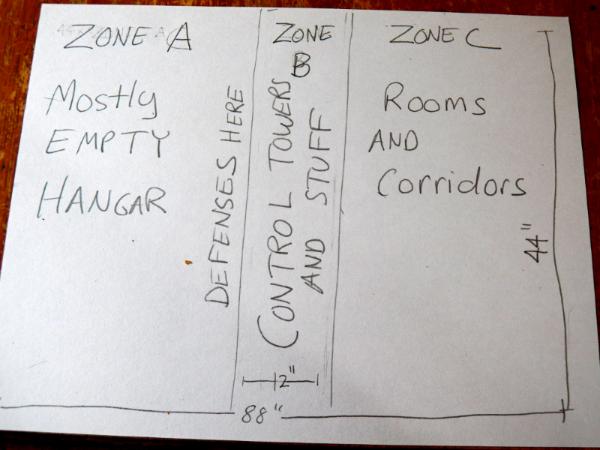 ZONE A
Mostly
EMPTY
HANGAR
DEFENSES HERE
ZONE
B
CONTROL TOWERS
AND STUFF
ZONE C
Rooms
AND
Corridors
44"
2"
88"